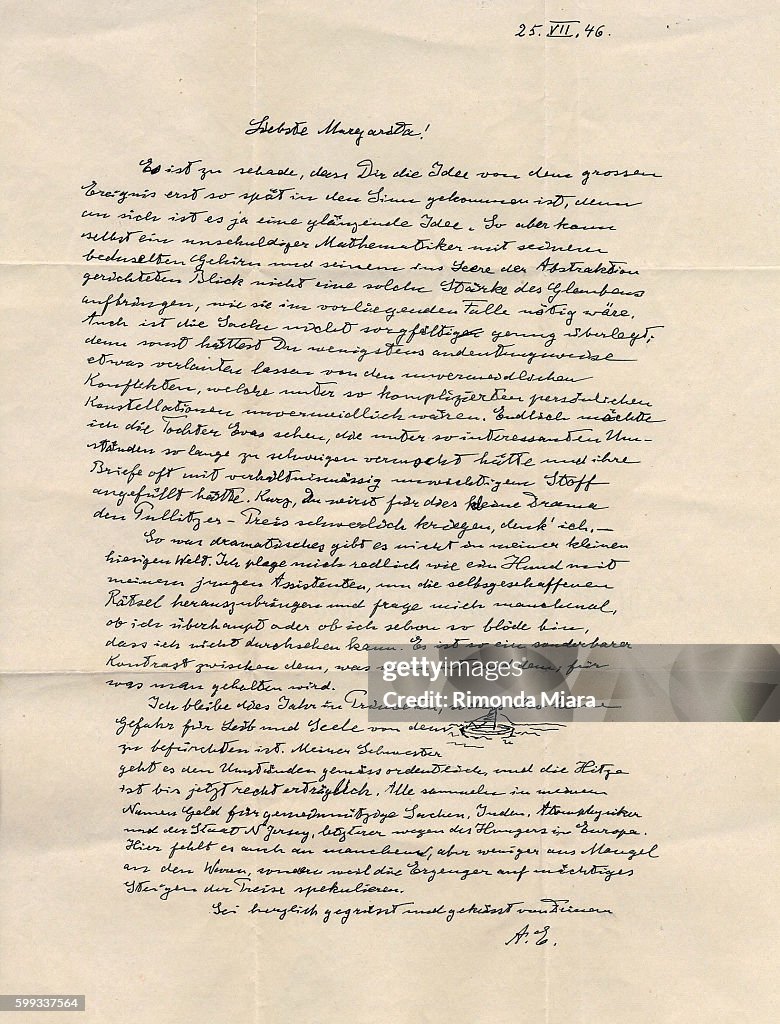 25. VII. 46.
Liebste Margarita!
Es ist zu schade, dass Dir die Idee von dem grossen
Ereignis erst so spät in den Sinn gekommen ist, denn
an sich ist es ja eine glänzende Idee. So aber kann
selbst ein unschuldiger Mathematiker mit seinem
beduselten Gehirn und seinem ins Leere der Abstraktion
gerichteten Blick nicht eine solche Stärke des Glaubens
aufbringen, wie sie im vorliegenden Falle nötig wäre.
Auch ist die Sache nicht sorgfältig genug überlegt;
denn sonst hättest Du wenigstens andeutungsweise
etwas verlauten lassen von den unvermeidlichen
Konflikten, welche unter so komplizierten persönlichen
Konstellationen unvermeidlich wären. Endlich möchte
ich die Tochter Evas sehen, die unter so interessanten Um-
ständen so lange zu schweigen vermocht hätte und ihre
Briefe oft mit verhältnismässig unwichtigem Stoff
angefüllt hätte. Kurz, Du wirst für dies kleine Drama
den Pullitzer-Preis schwerlich kriegen, denk' ich.—
So was dramatisches gibt es nicht in meiner kleinen
hiesigen Welt. Ich plage mich redlich wie ein Hund mit
meinem jungen Assistenten, um die selbsgeschaffenen
Rätsel herauszubringen und frage mich manchmal,
ob ich überhaupt oder ob ich schon so blöde bin,
dass ich nicht durchsehen kann. Es ist so ein sonderbarer
Kontrast zwischen dem, was dem, für
was man gehalten wird.
Ich bleibe dies Jahr in
Gefahr für Leib und Seele von dem
zu befürchten ist. Meiner Schwester
geht es den Umständen gemäss ordentlich, und die Hitze
ist bis jetzt recht erträglich. Alle sammeln in meinem
Namen Geld für gemeinnützige Sachen, Juden, Atomphysiker
und der Staat N Jersey, letzterer wegen des Hungers in Europa.
Hier fehlt es auch an manchem, aber weniger aus Mangel
an den Waren, sondern weil die Erzeuger auf mächtiges
Steigen der Preise spekulieren.
Sei herzlich gegrüsst und geküsst von Deinem
A. E.
gettyimages®
Credit: Rimonda Miara
599337564